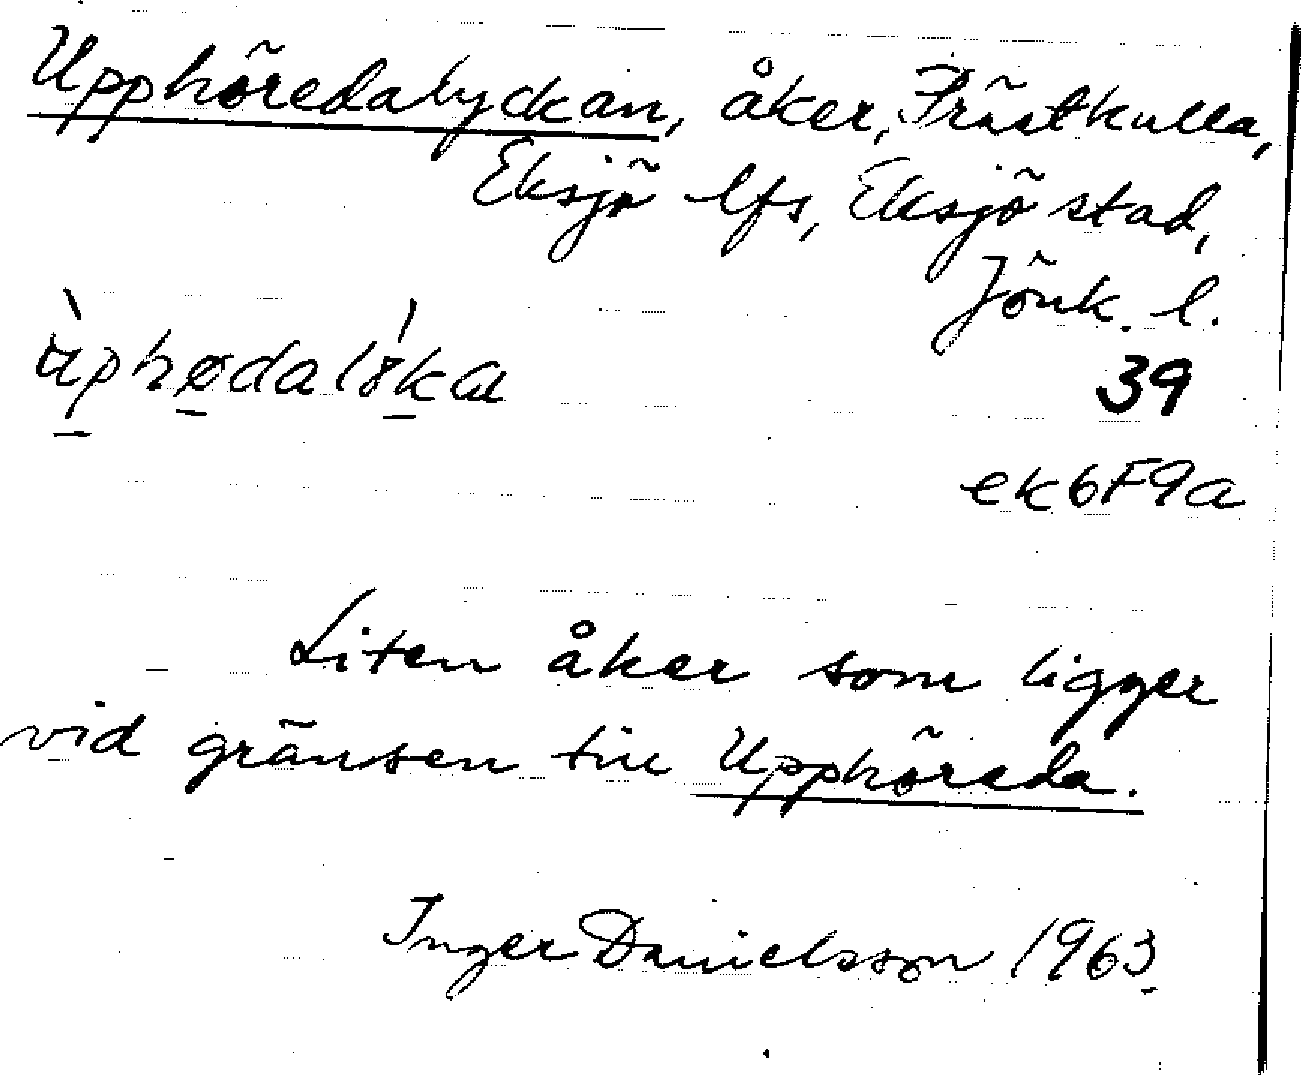 Upphöredalyckan, åker, Prästkulla,
Eksjö lfs, Eksjö stad,
Jönk. l.
39
ek6F9a
Liten åker som ligger
vid gränsen till Upphöreda.
Inger Danielsson 1963